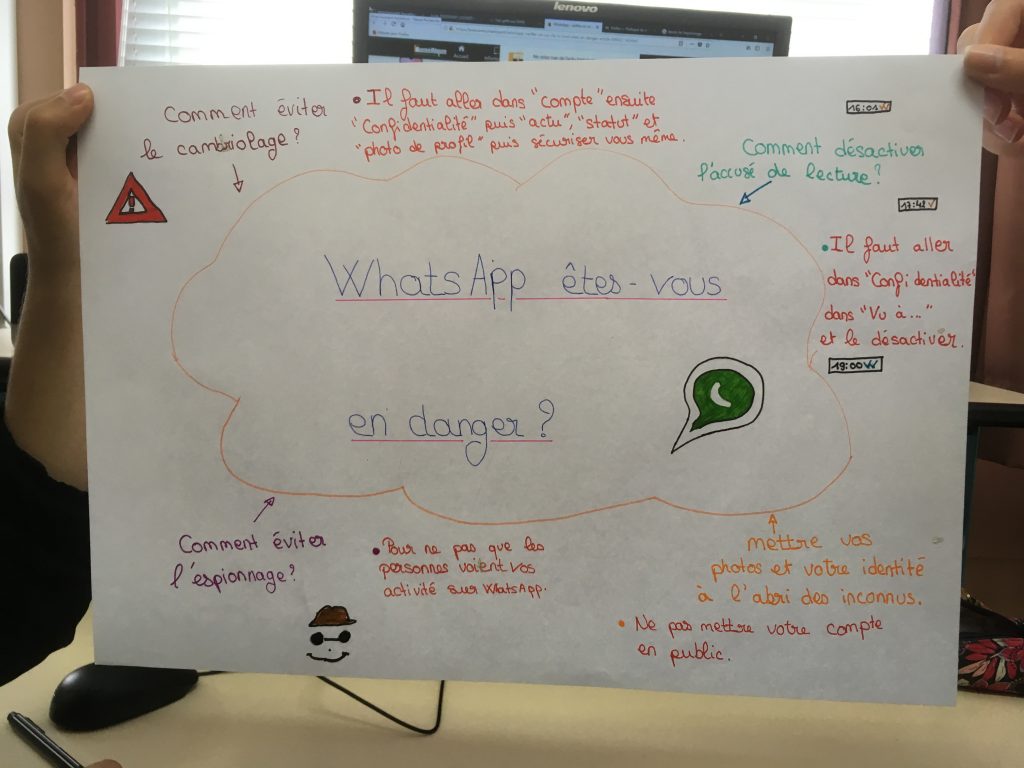 lenovo
Comment éviter
le cambriolage?
• Il faut aller dans "compte" ensuite
"Confidentialité" puis "actu", "statut" et
"photo de profil" puis sécuriser vous même.
16:01
Comment désactiver
l'accusé de lecture?
17:48
• Il faut aller
dans "Confidentialité"
dans "Vu à..."
et le désactiver.
19:00
WhatsApp êtes-vous
en danger?
Comment éviter
l'espionnage?
• Pour ne pas que les
personnes voient vos
activité sur WhatsApp.
mettre vos
photos et votre identité
à l'abri des inconnus.
• Ne pas mettre votre compte
en public.